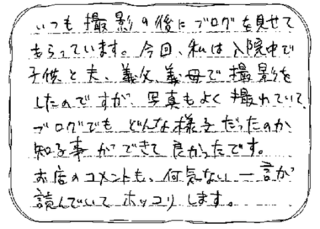 いつも撮影の後にブログを見せて
もらっています。今回、私は入院中で
子供と夫、義父、義母で撮影を
したのですが、写真もよく撮れていて、
ブログでもどんな様子だったのか
知る事ができて良かったです。
お店のコメントも、何気ない一言が
読んでいてホッコリします。